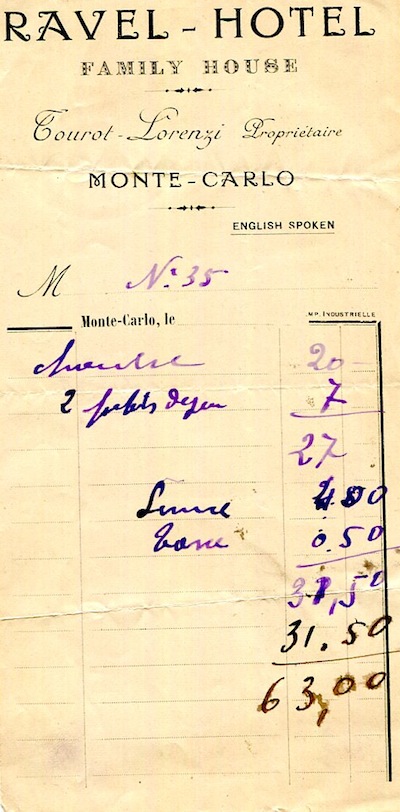 RAVEL - HOTEL
FAMILY HOUSE
Tourot-Lorenzi Propriétaire
MONTE-CARLO
ENGLISH SPOKEN
M N° 35
Monte-Carlo, le
MP. INDUSTRIELLE
20 -
2 petits dejeu 7
27
4.00
Taxe 0.50
31,50
31.50
63,00